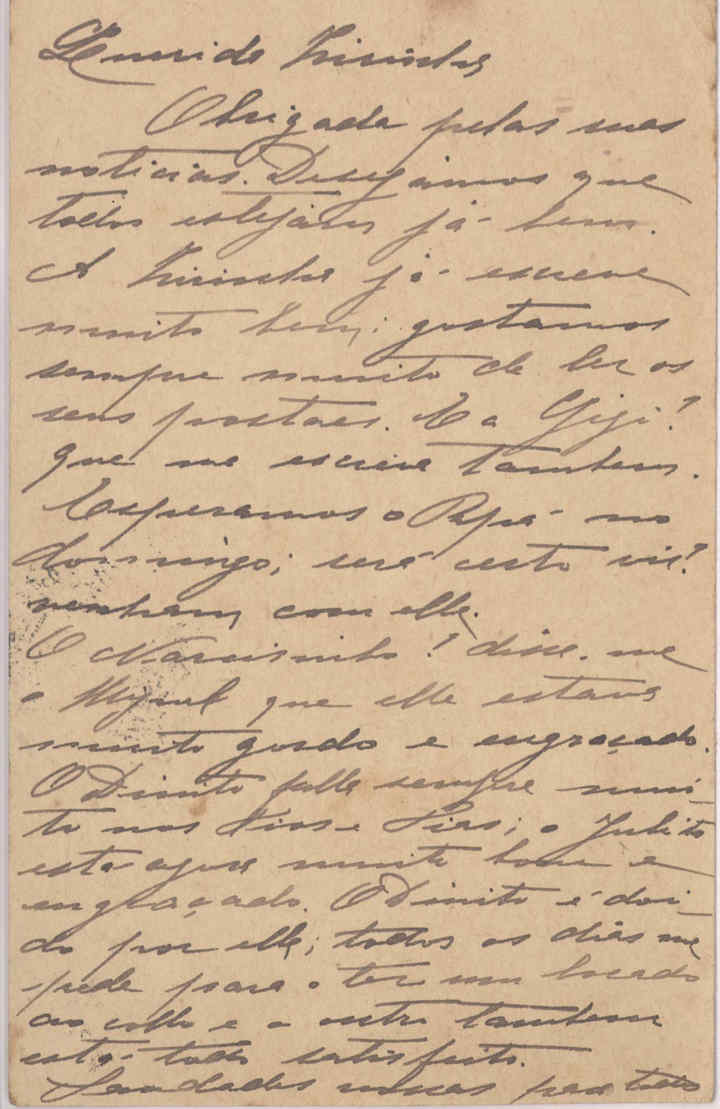 Querida Liriska
Obrigada pelas suas
noticias. Desejamos que
todos estejam já bem.
A já escreve
muito bem; gostamos
sempre muito de ler os
seus postaes. E a Gigi?
que me escreva tambem.
Esperamos o Papá no
domingo; será certo vir?
venham com elle.
O Narcisinho? disse-me
o Miguel que elle estava
muito gordo e engraçado.
O Dinito falla sempre mui-
to nos tios e tias; o Julito
está agora muito bom e
engraçado. O Dinito é doi-
do por elle; todos os dias me
pede para o ter um bocado
ao collo e o outro tambem
está todo satisfeito.
Saudades nossas para todos